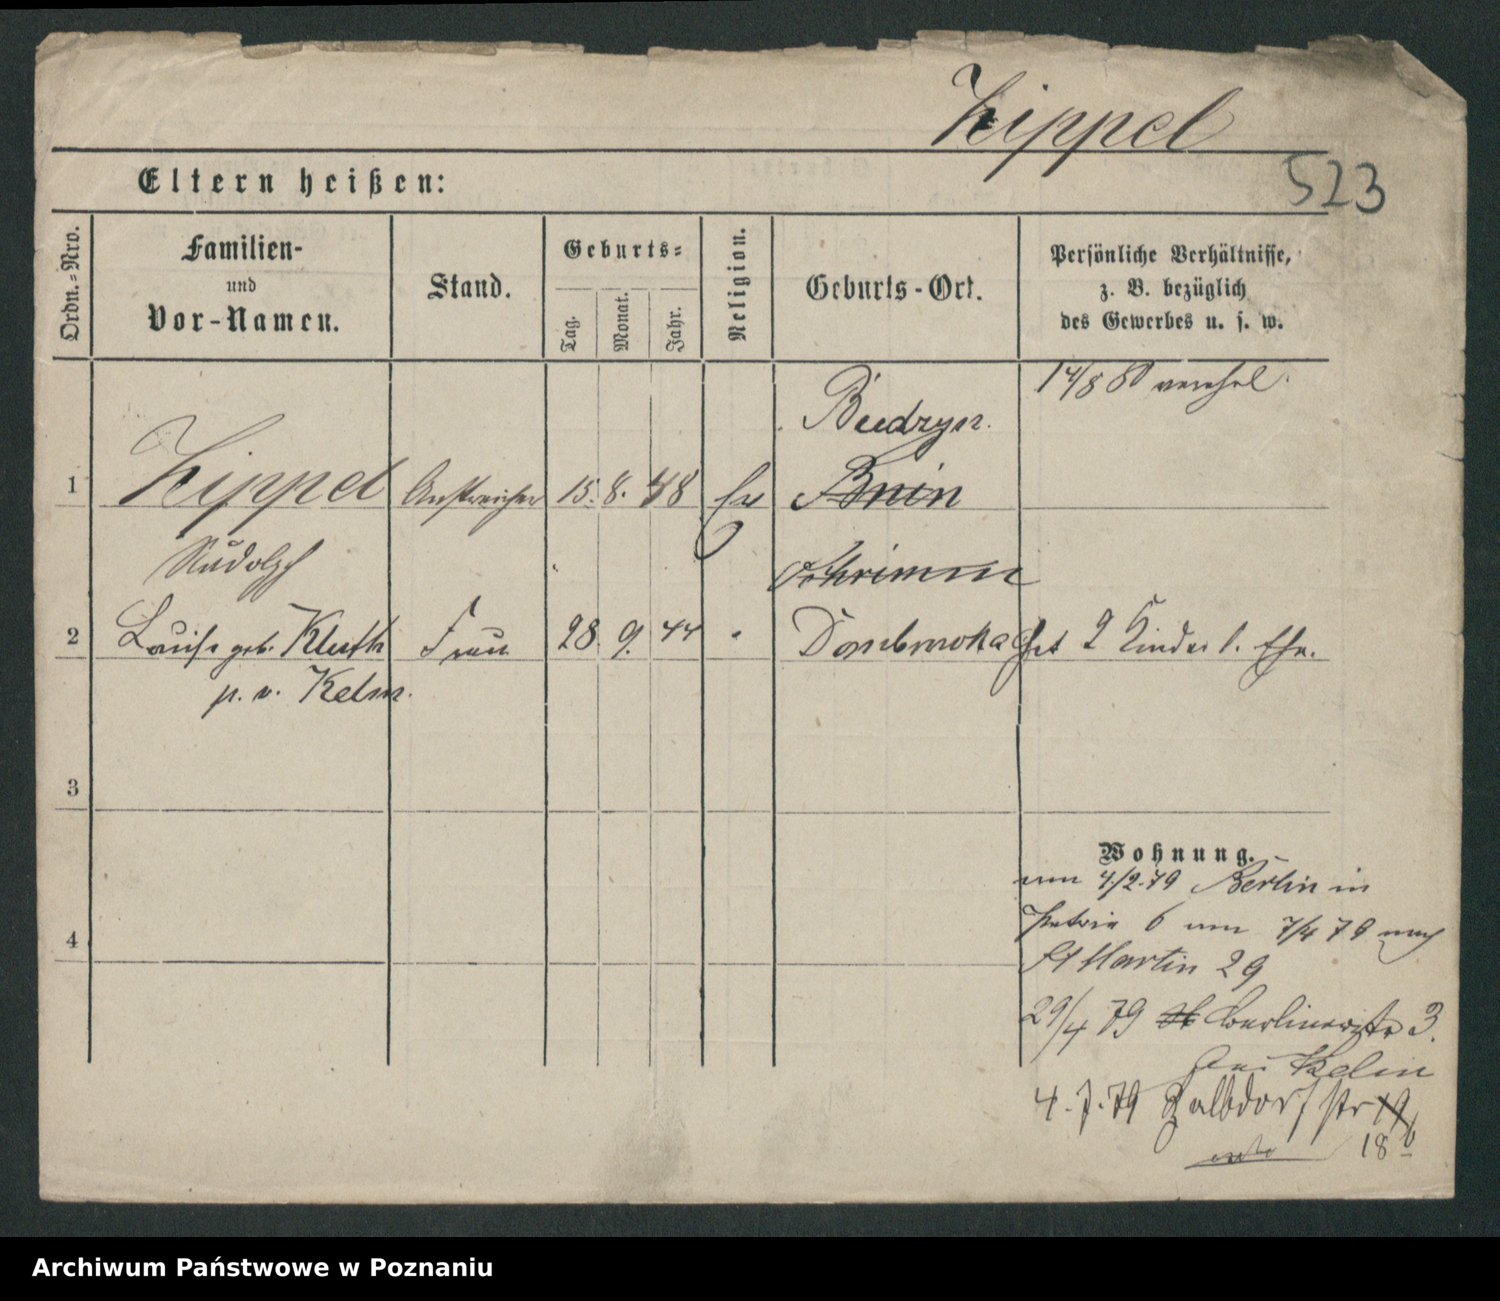 Zippel
523
Eltern heißen:
Ordn.-Nro.
Familien-
und
Vor-Namen.
Stand.
Geburts-
Tag.
Monat.
Jahr.
Religion.
Geburts-Ort.
Persönliche Verhältnisse,
z. B. bezüglich
des Gewerbes u. s. w.
14/8 80
Budzyn.
1 Zippel Anstreicher 15. 8. 48 Ev Bnin
Rudolph Schrimm
2 Louise geb. Kluth Frau 28. 9. 44 " Dombrowka Hat 2 Kinder I. Ehe.
p. v. Kelm.
3
Wohnung.
4/2.79 Berlin in
4
6 7/4 79 nach
St Martin 29
29/4 79 St Berlinerstr 3.
bei Kelm
4. 7. 79 Halbdorfstr 19
18 b
Archiwum Państwowe w Poznaniu